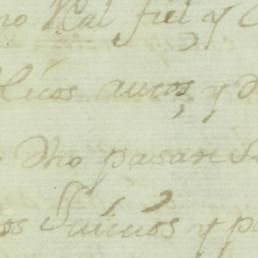 no Real fiel y
licos autos, y d
dho pasan
os Juicios y p